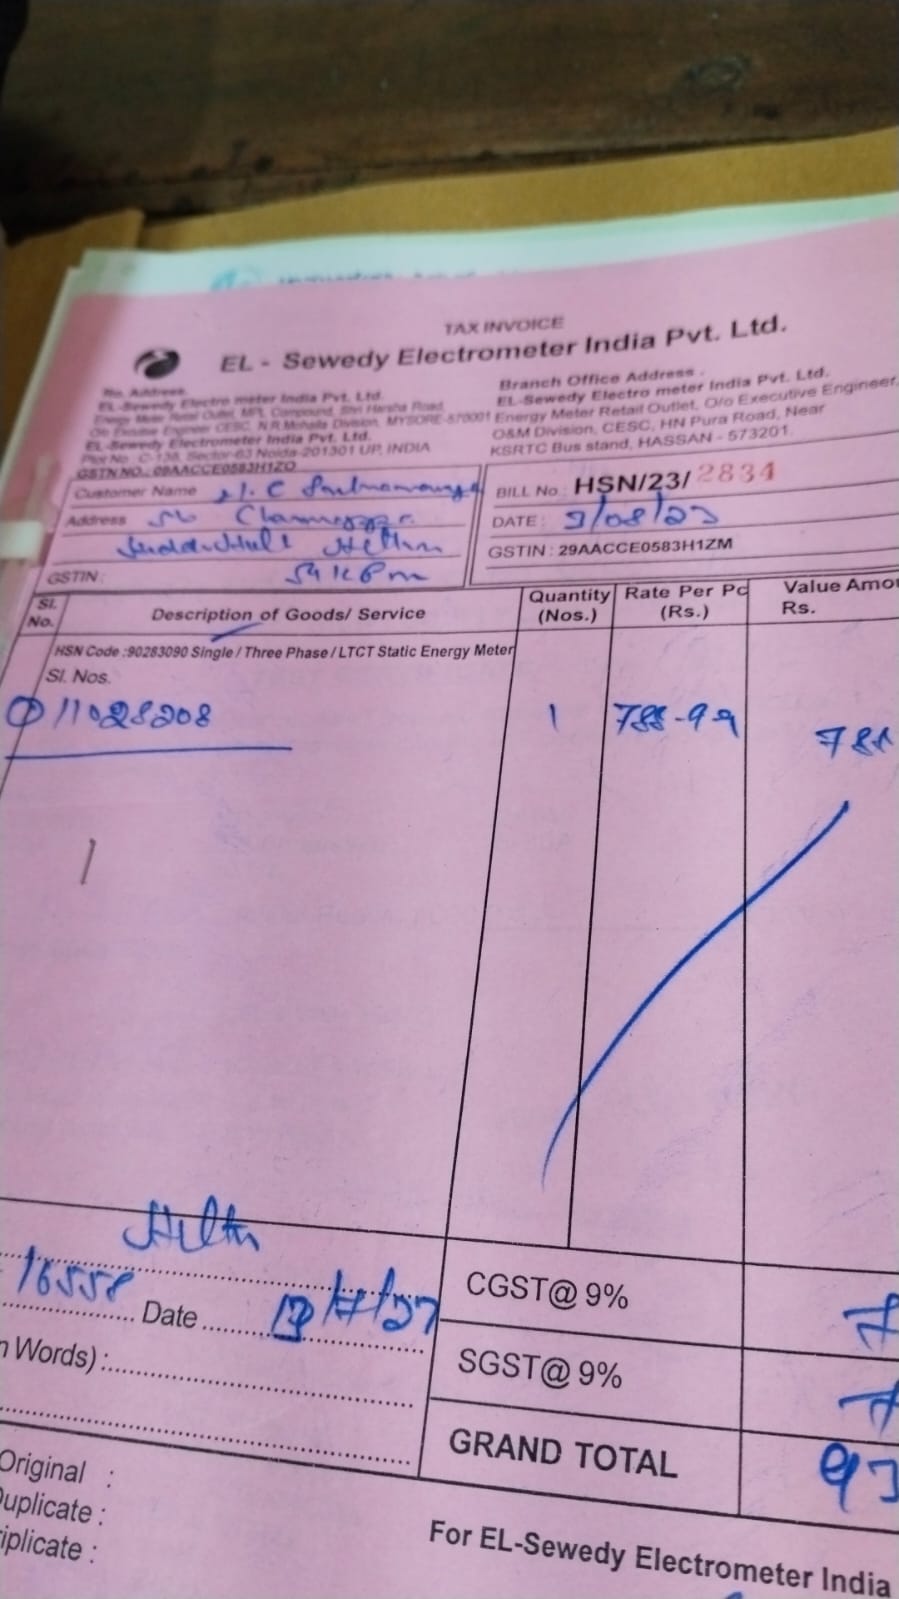 TAX INVOICE
EL - Sewedy Electrometer India Pvt. Ltd.
EL-Sewedy Electro meter India Pvt. Ltd.
Energy Meter Retail Outlet, MPL Compound, Shri Harsha Road,
O/o Executive Engineer CESC, N.R.Mohalla Division, MYSORE-570001
EL-Sewedy Electrometer India Pvt. Ltd.
Plot No : C-138, Sector-63 Noida-201301 UP, INDIA
GSTN NO.: 09AACCE0583H1ZO
Branch Office Address .
EL-Sewedy Electro meter India Pvt. Ltd.
Energy Meter Retail Outlet, O/o Executive Engineer,
O&M Division, CESC, HN Pura Road, Near
KSRTC Bus stand, HASSAN - 573201.
Customer Name
Address
GSTIN :
BILL No.: HSN/23/ 2834
DATE : 9/08/23
GSTIN : 29AACCE0583H1ZM
Sl. No. Description of Goods/ Service Quantity (Nos.) Rate Per Pc (Rs.) Value Amo Rs.
HSN Code :90283090 Single / Three Phase / LTCT Static Energy Meter
Sl. Nos.
① 11028208 1 788-99 788
16558 Date
n Words) :
CGST@ 9%
SGST@ 9%
GRAND TOTAL 93
Original :
Duplicate :
riplicate :
For EL-Sewedy Electrometer India